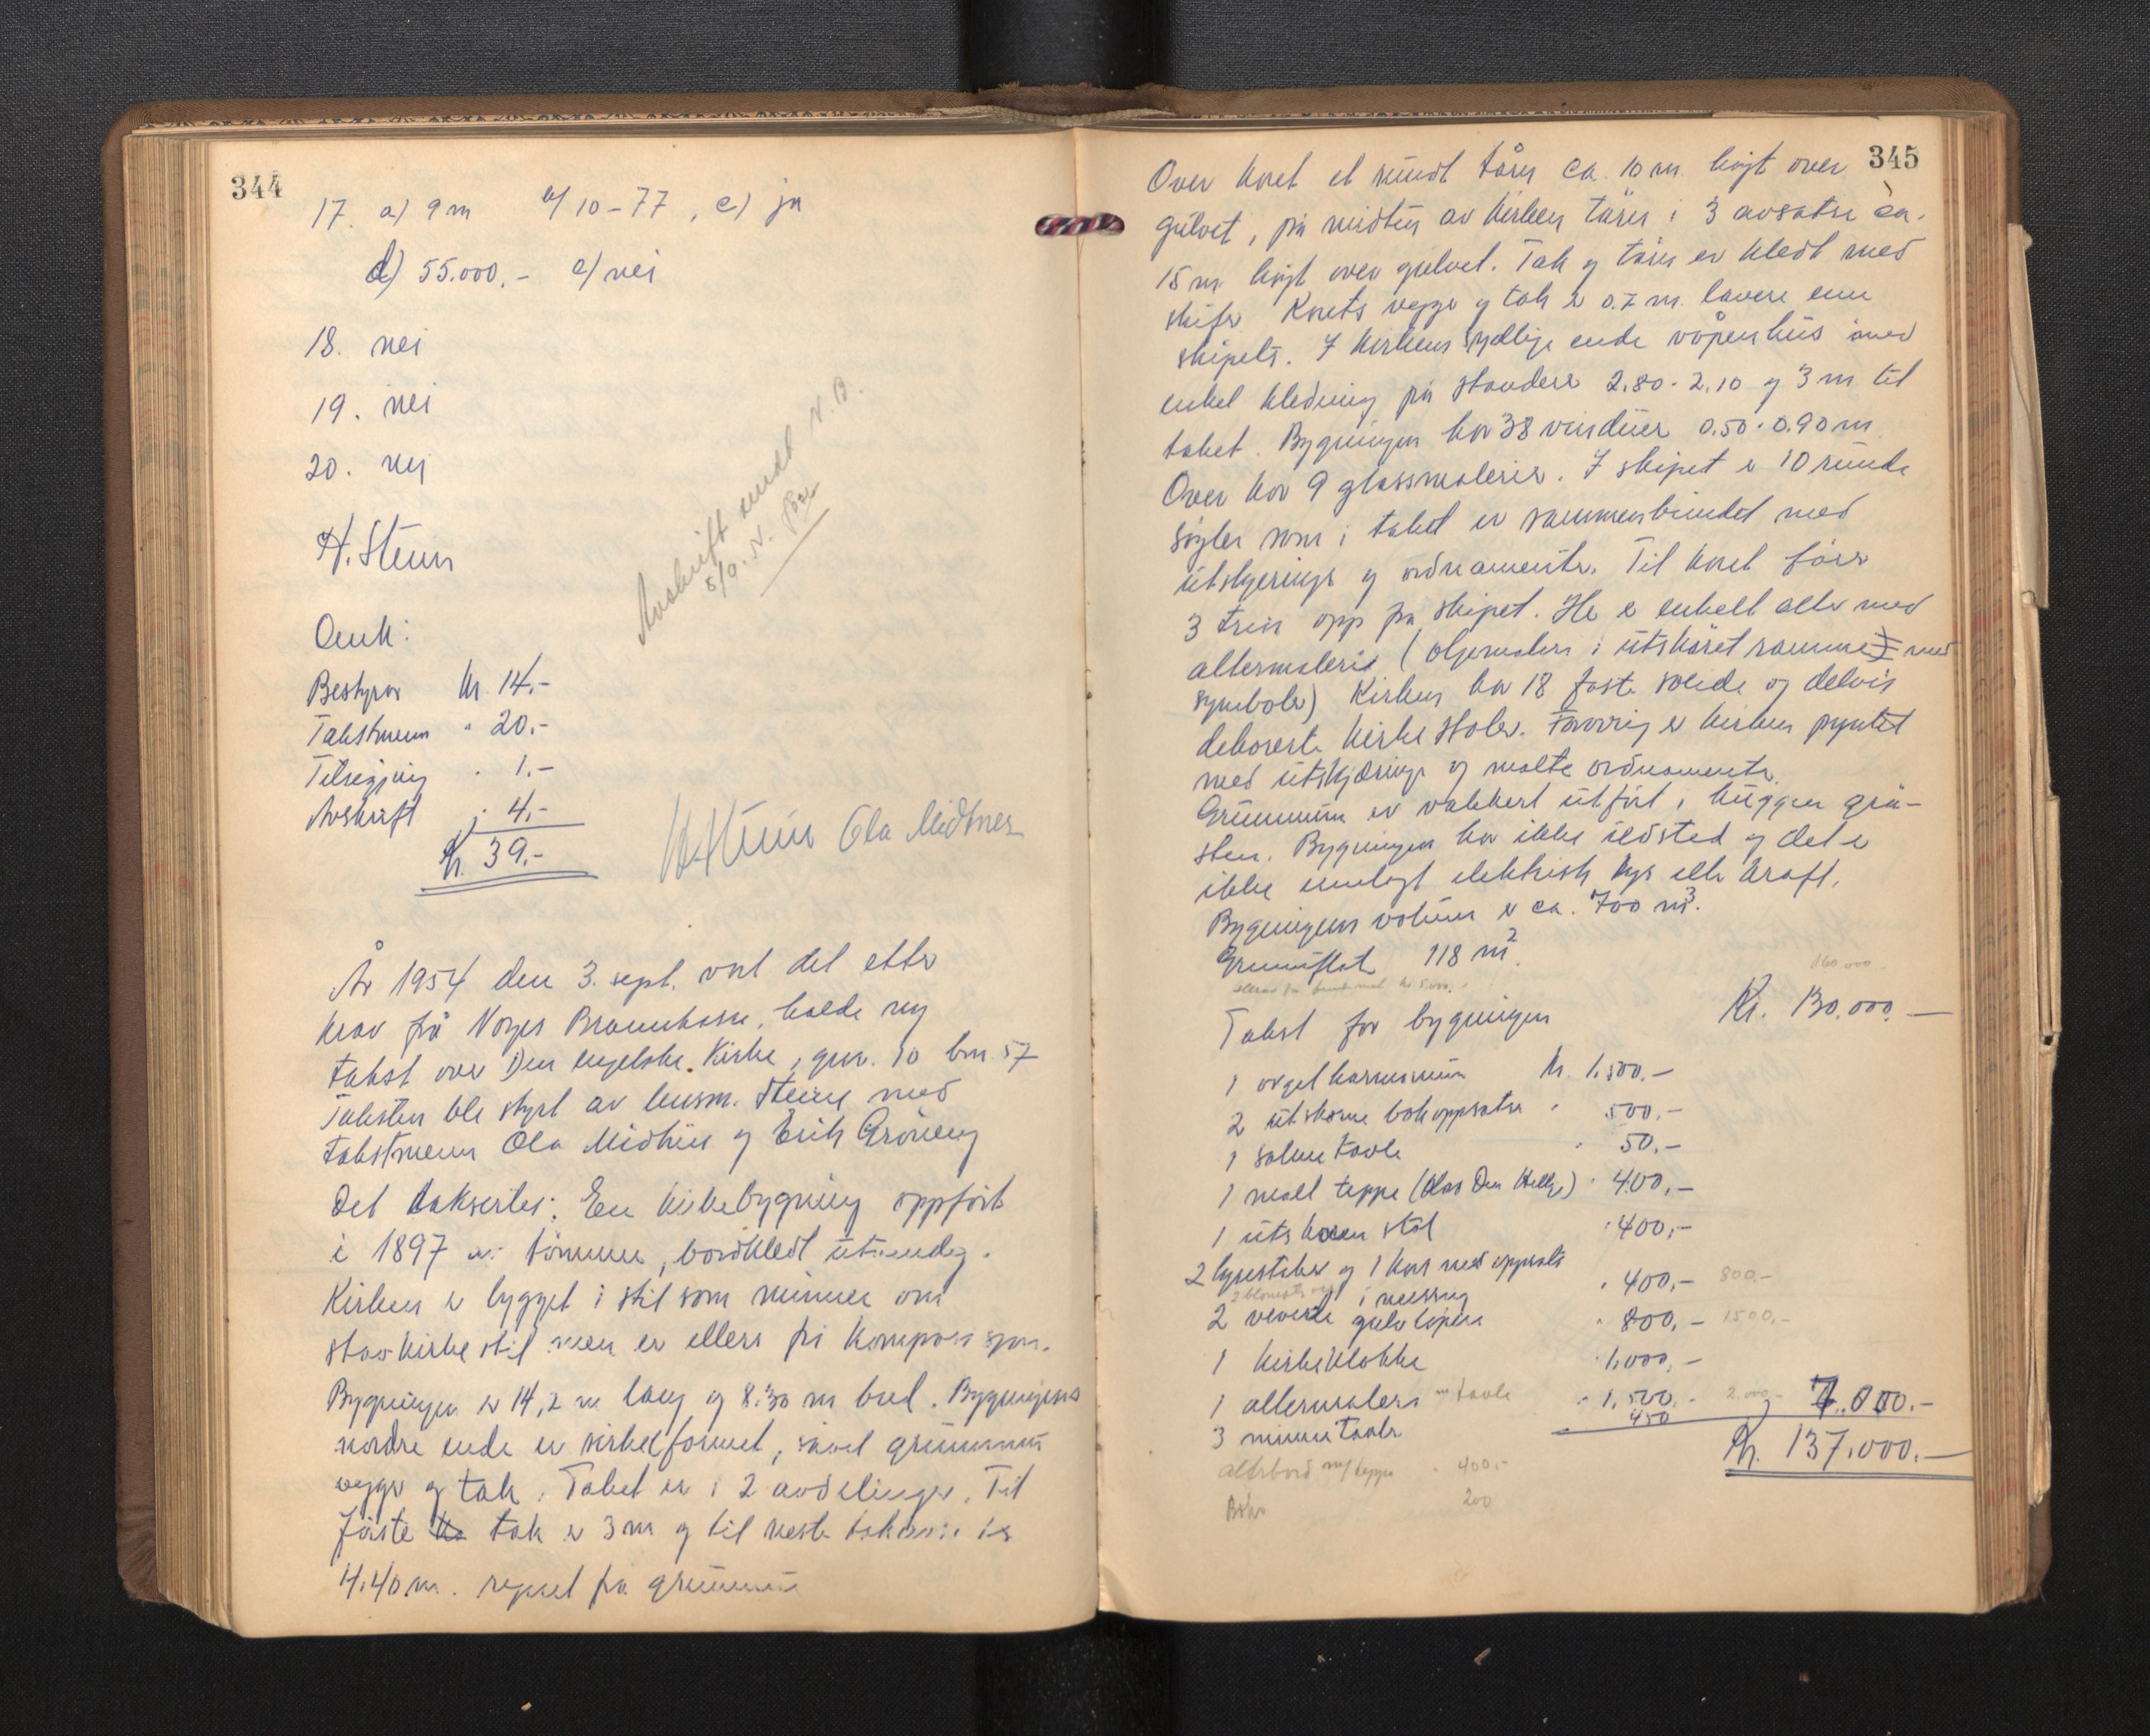 344
17. a) 9 m b) 10-77, c) ja
d) 55.000,- e) nei
18. nei
19. nei
20. nei
H. Stein
Omk:
Bestyrer kr. 14.-
Takstmenn " 20.-
Tilsegjing " 1.-
Avskrift " 4.-
Kr. 39.-
Avskrift sendt N. B.
5/0. N.
H. Stein Ola Midtnes
År 1954 den 3. sept. vart det etter
krav frå Norges Brannkasse, halde ny
takst over Den engelske Kirke, gnr. 10 bnr 57
Taksten ble styrt av lensm. Steine med
takstmenn Ola Midtnes og Erik Grøneng
Det takseres: En kirkebygning oppført
i 1897 av tømmer, bordkledt utvendig.
Kirken er bygget i stil som minner om
stavkirkestil men er ellers fri komposisjon.
Bygningen er 14,2 m lang og 8.30 m bred. Bygningens
nordre ende er sirkelformet, såvel grunnmur
vegger og tak. Taket er i 2 avdelinger. Til
første tak er 3 m og til neste
4.40 m. regnet fra grunnmur
345
Over koret et rundt tårn ca. 10 m. høgt over
gulvet, på midten av kirken tårn i 3 avsatser ca.
15 m høgt over gulvet. Tak og tårn er kledt med
skifer. Korets vegger og tak er 0.7 m. lavere enn
skipets. I kirkens sydlige ende våpenhus med
enkel kledning på stendere 2.80 · 2.10 og 3 m til
taket. Bygningen har 38 vinduer 0.50 · 0.90 m
Over kor 9 glassmalerier. I skipet er 10 runde
søyler som i taket er sammenbundet med
utskjeringer og ordnamenter. Til koret fører
3 trin opp fra skipet. Her er enkelt alter med
altermaleri (oljemaleri i utskåret ramme) med
symboler) Kirken har 18 faste solide og delvis
dekorerte kirkestoler. Forøvrig er kirken pyntet
med utskjæringer og malte ordnamenter.
Grunnmuren er vakkert utført i huggen grå-
sten. Bygningen har ikke ildsted og det er
ikke innlagt elektrisk lys eller kraft.
Bygningens volum er ca. 700 m³.
Grunnflate 118 m²
160.000
Takst for bygningen Kr. 130.000.-
1 orgelharmonium kr. 1.500.-
2 utskorne bokoppsatser " 500.-
1 salmetavle " 50.-
1 malt teppe (Olav Den Hellige) " 400,-
1 utskoren stol " 400,-
2 lysestaker og 1 kors med oppsats
i messing " 400,- 800.-
2 vevede gulvløpere " 800,- 1500,-
1 kirkeklokke " 1.000,-
1 altermaleri tavle " 1.500,- 2.000,- 7.000.-
3 minnetavler 450
Kr. 137.000.-
alterbord m/teppe " 400.-
Bøker 200